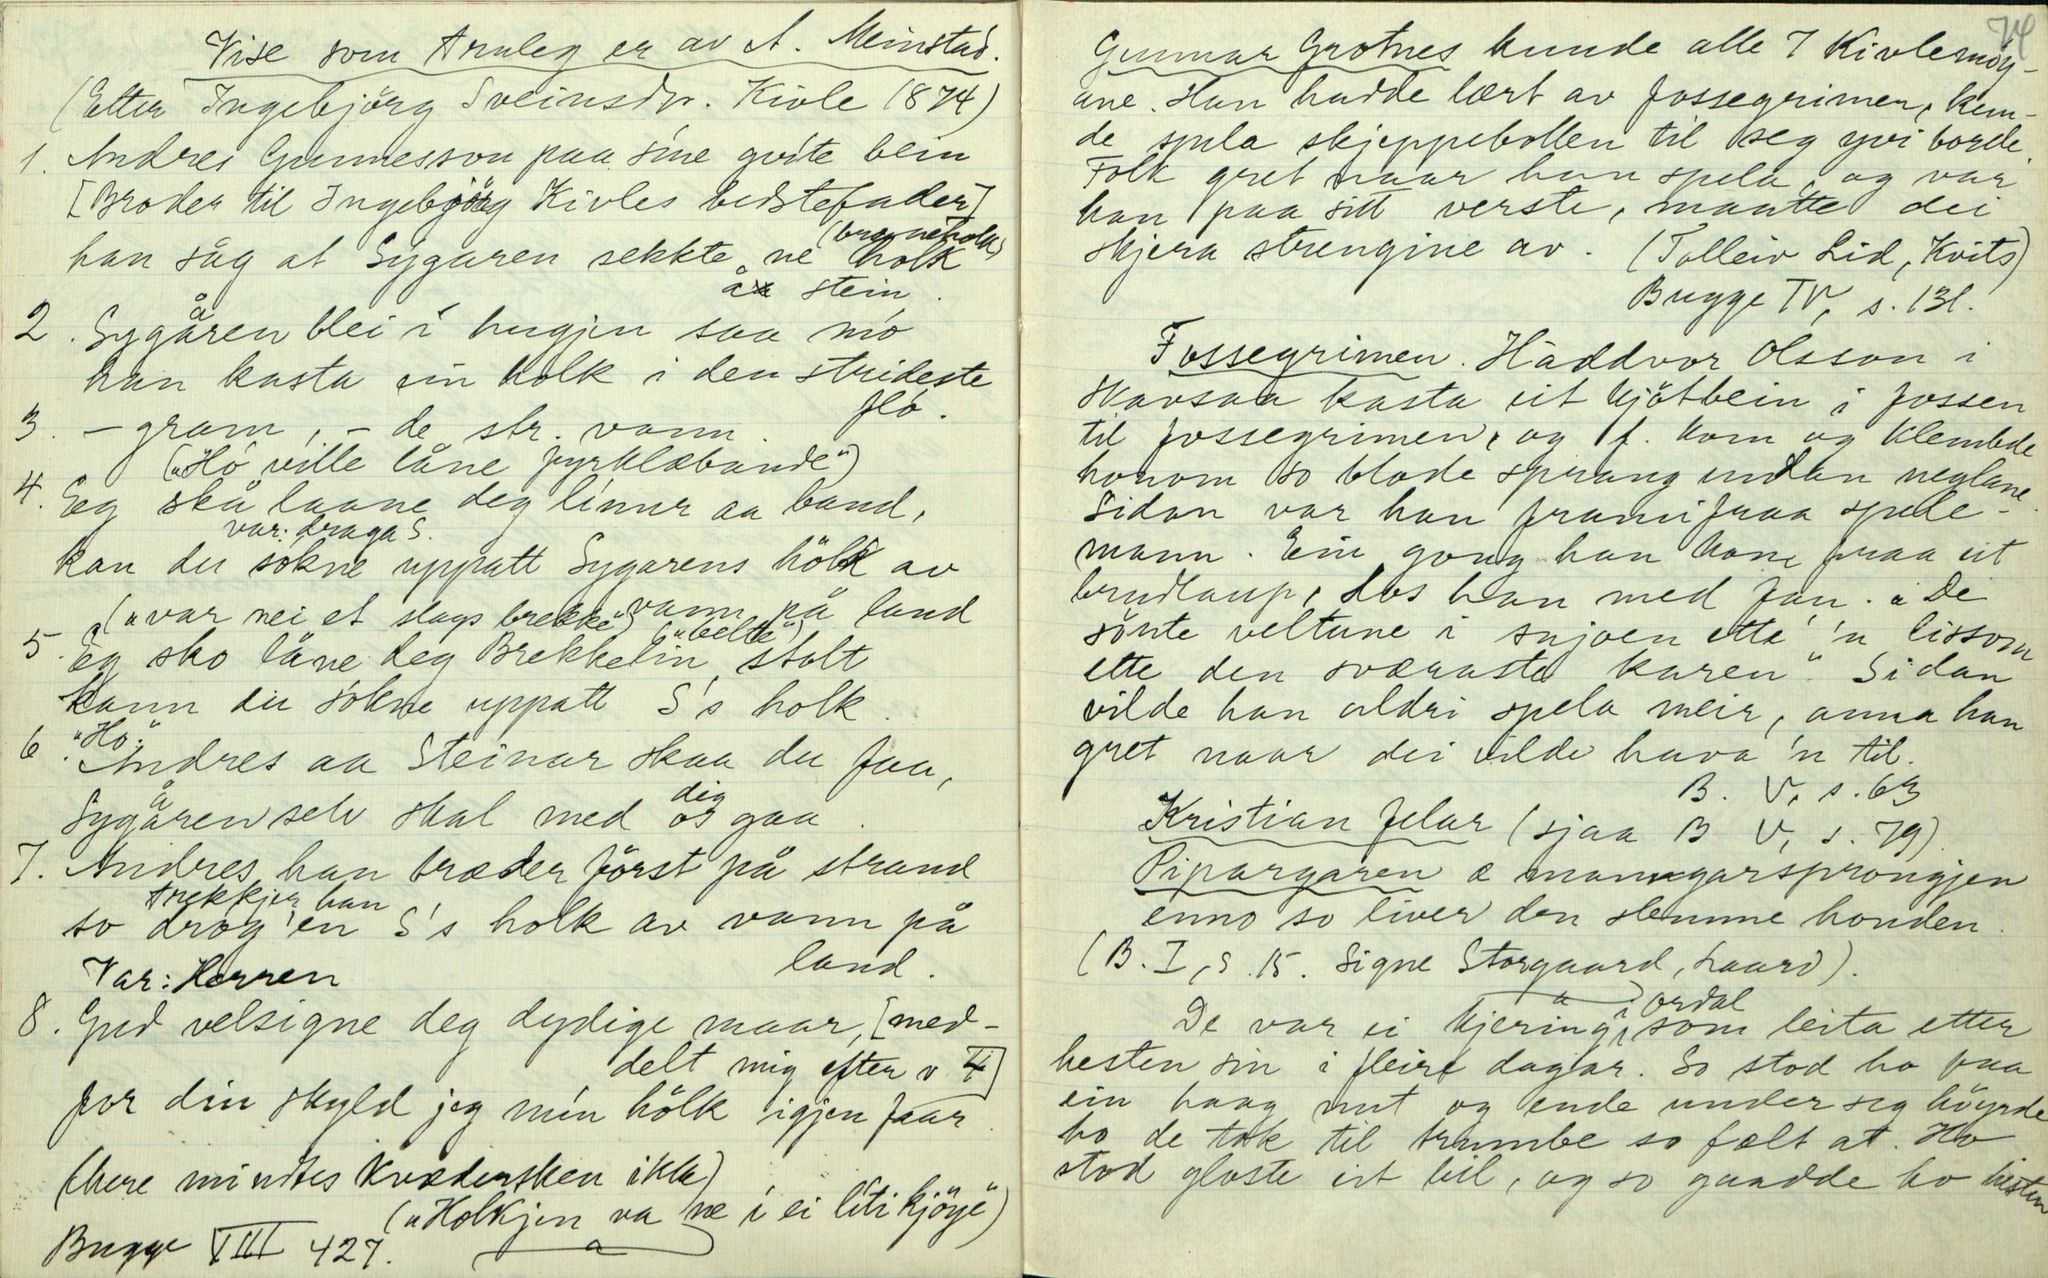 Vise som truleg er av A. Meinstad.
(Etter Ingebjörg Sveinsdr. Kivle 1874)
1. Andres Gunnesson paa sine qvite bein
[Broder til Ingebjörg Kivles bedstefader]
(brennehölk)
han såg at Sygaren sekkte ne holk
å stein.
2. Sygåren blei i hugjen saa mo
han kasta sin holk i den strideste
flo.
3. – gram, – de str. vann.
("Ho ville låne pyrklæbande")
4. Eg ska laane deg linnur aa band,
var: draga S.
kan du søkne uppatt Sygarens hölk av
vann på land
("var nei et slags brekke") ("belte")
5. Eg sko låne deg Brekkelin stolt
kann du sökne uppatt S's holk.
"Ho:"
6. Andres aa Steinar skaa du faa,
dig
Sygåren selv skal med os gaa.
7. Andres han træder först på strand
trekkjer han
so drog 'en S's holk av vann på
land.
Var: Herren
8. Gud velsigne deg dydige maar, [med-
delt mig efter v 4]
for din skyld jeg min hölk igjen faar.
(mere mindtes Kvædersken ikke)
("Holkjen va ne i ei liti kjöyë")
Bugge VIII 427.
74
Gunnar Grotnes kunde alle 7 Kivlemöy-
ane. Han hadde lært av fossegrimen, kun-
de spela skjeppebollen til seg yvi borde.
Folk gret naar han spela, og var
han paa sitt verste, maatte dei
skjera strengine av. (Tolleiv Lid, Kvits)
Bugge IV, s. 131.
Fossegrimen. Haddvor Olsson i
Skavsaa kasta eit kjötbein i fossen
til fossegrimen, og f. kom og klembde
honom so blode sprang undan neglane.
Sidan var han framifraa spele-
mann. Ein gong han kom fraa eit
brudlaup, dos han med fan. "De
sönte veltune i snjoen ette 'n lissom
ette den sværaste karen". Sidan
vilde han aldri spela meir, anna han
gret naar dei vilde hava 'n til.
B. V, s. 63
Kristian Jelar (sjaa B V, s. 79)
Pipargaren æ manngarsprongjen
enno so liver den slemme honden.
(B. I, s. 15. Signe Storgaard, Laard).
De var ei kjering i ordal som leita etter
hesten sin i fleire dagar. So stod ho paa
ein haag nut og ende under seg höyrde
ho de tok til trumbe so fælt at. Ho
stod gloste eit bil, og so gaadde ho hesten